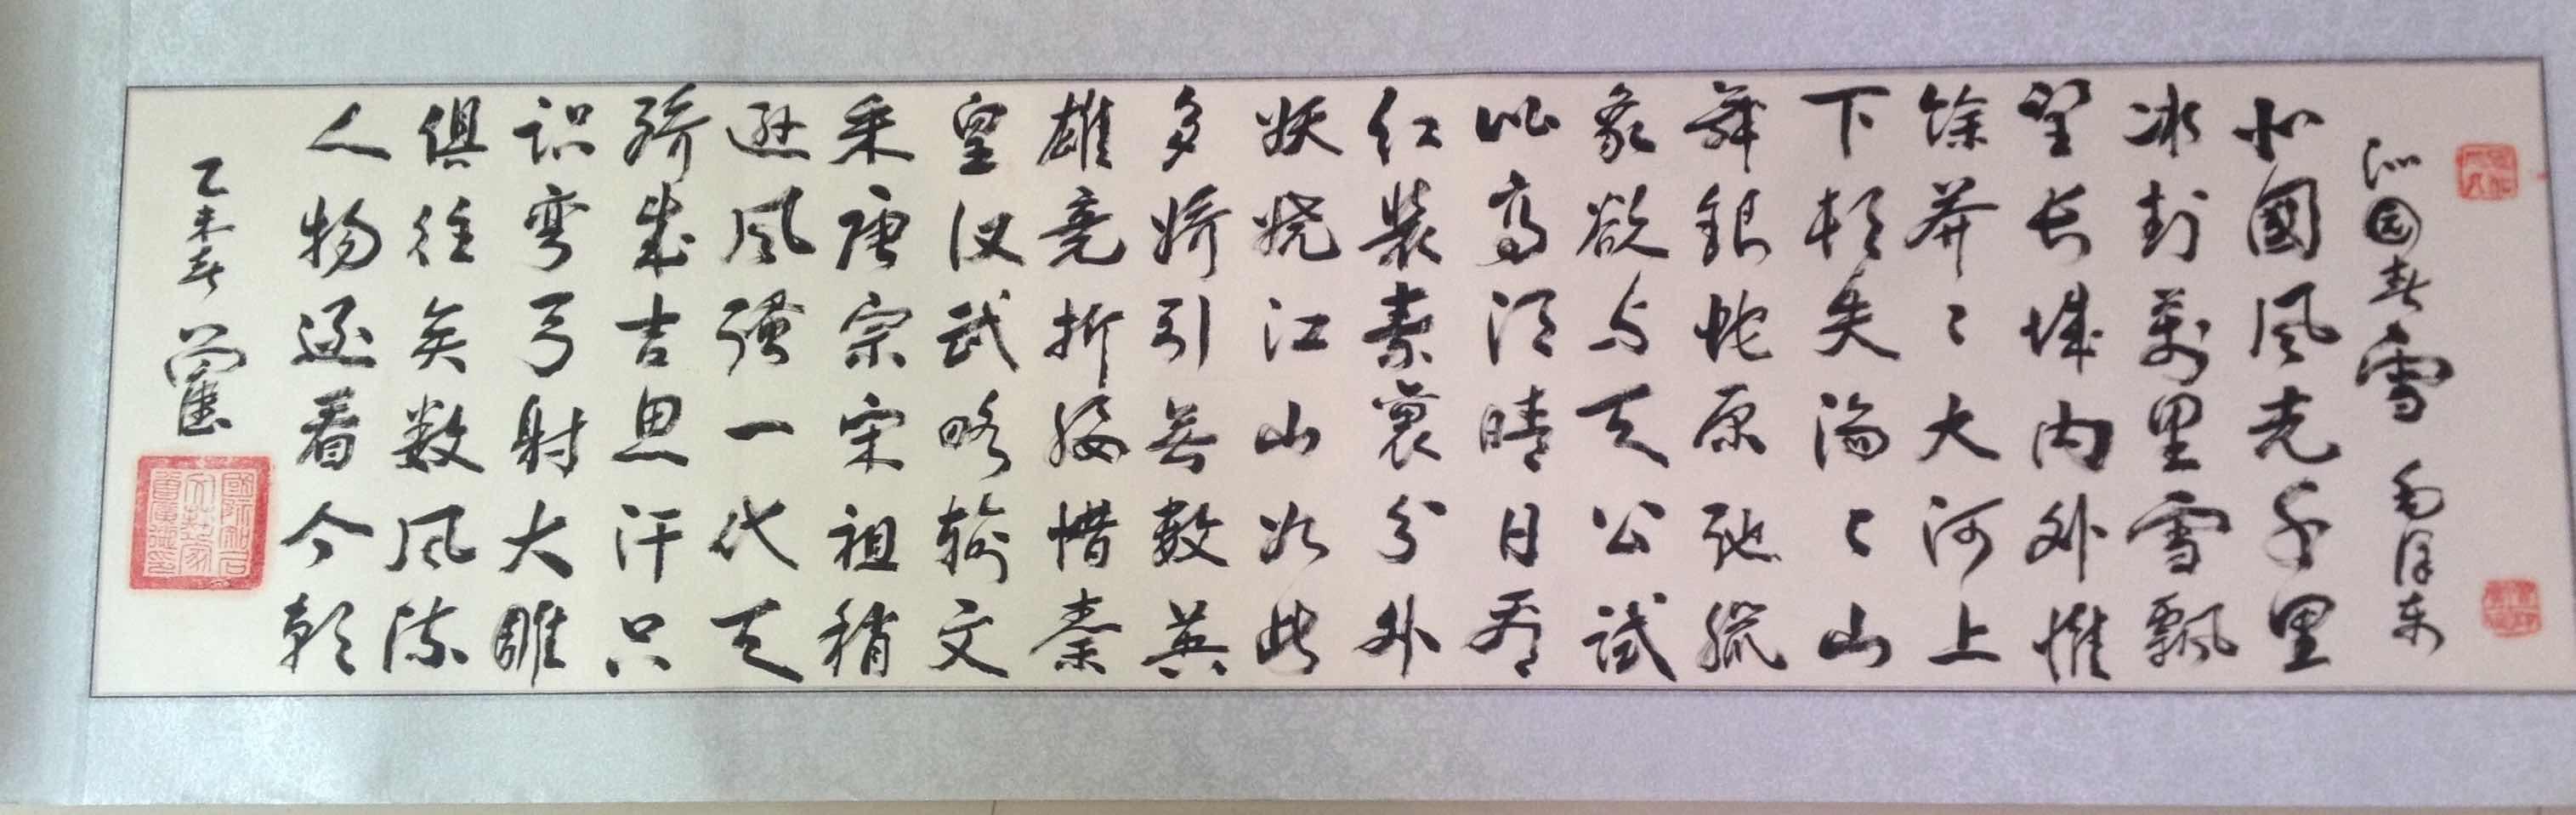 沁园春雪 毛泽东
北國風光千里
冰封萬里雪飘
望长城内外惟
馀莽〻大河上
下顿失滔〻山
舞银蛇原驰腊
象欲与天公试
比高须晴日看
红装素裹分外
妖娆江山如此
多娇引无数英
雄竞折腰惜秦
皇汉武略输文
采唐宗宋祖稍
逊风骚一代天
骄成吉思汗只
识弯弓射大雕
俱往矣数风流
人物还看今朝
乙未春